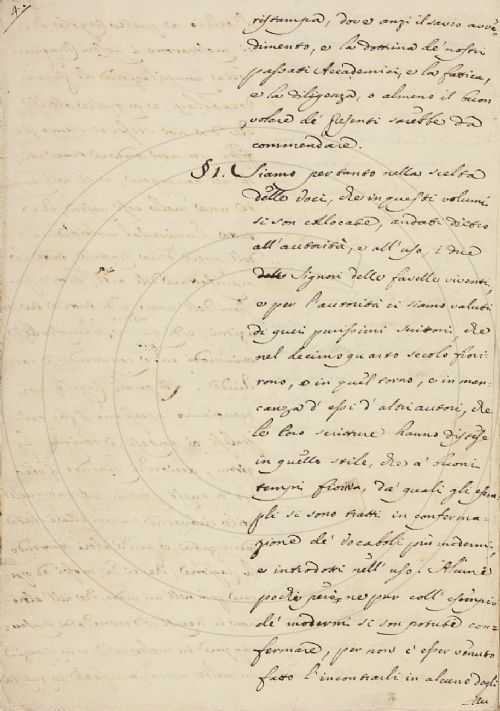 4.
ristampa, dove anzi il savio avve-
dimento, e la dottrina de' nostri
passati Accademici, e la fatica,
e la diligenza, o almeno il buon
volere de' presenti sarebbe da
commendare.
§1. Siamo pertanto nella scelta
delle voci, che in questi volumi
si son collocate, andati dietro
all'autorità, e all'uso, i due
Signori delle favelle viventi,
e per l'autorità ci siamo valuti
di quei purissimi scrittori, che
nel decimoquarto secolo fiori-
rono, e in quel torno, e in man-
canza d'essi d'altri autori, che
le loro scritture hanno distese
in quello stile, che a' buoni
tempi fioriva, da' quali gli esem-
pli si sono tratti in conferma-
zione de' vocaboli più moderni,
e introdotti nell'uso. Alcune
poche però, ne pur coll'esempio
de' moderni si son potute con-
fermare, per non c'esser venuto
fatto l'incontrarli in alcuno degli